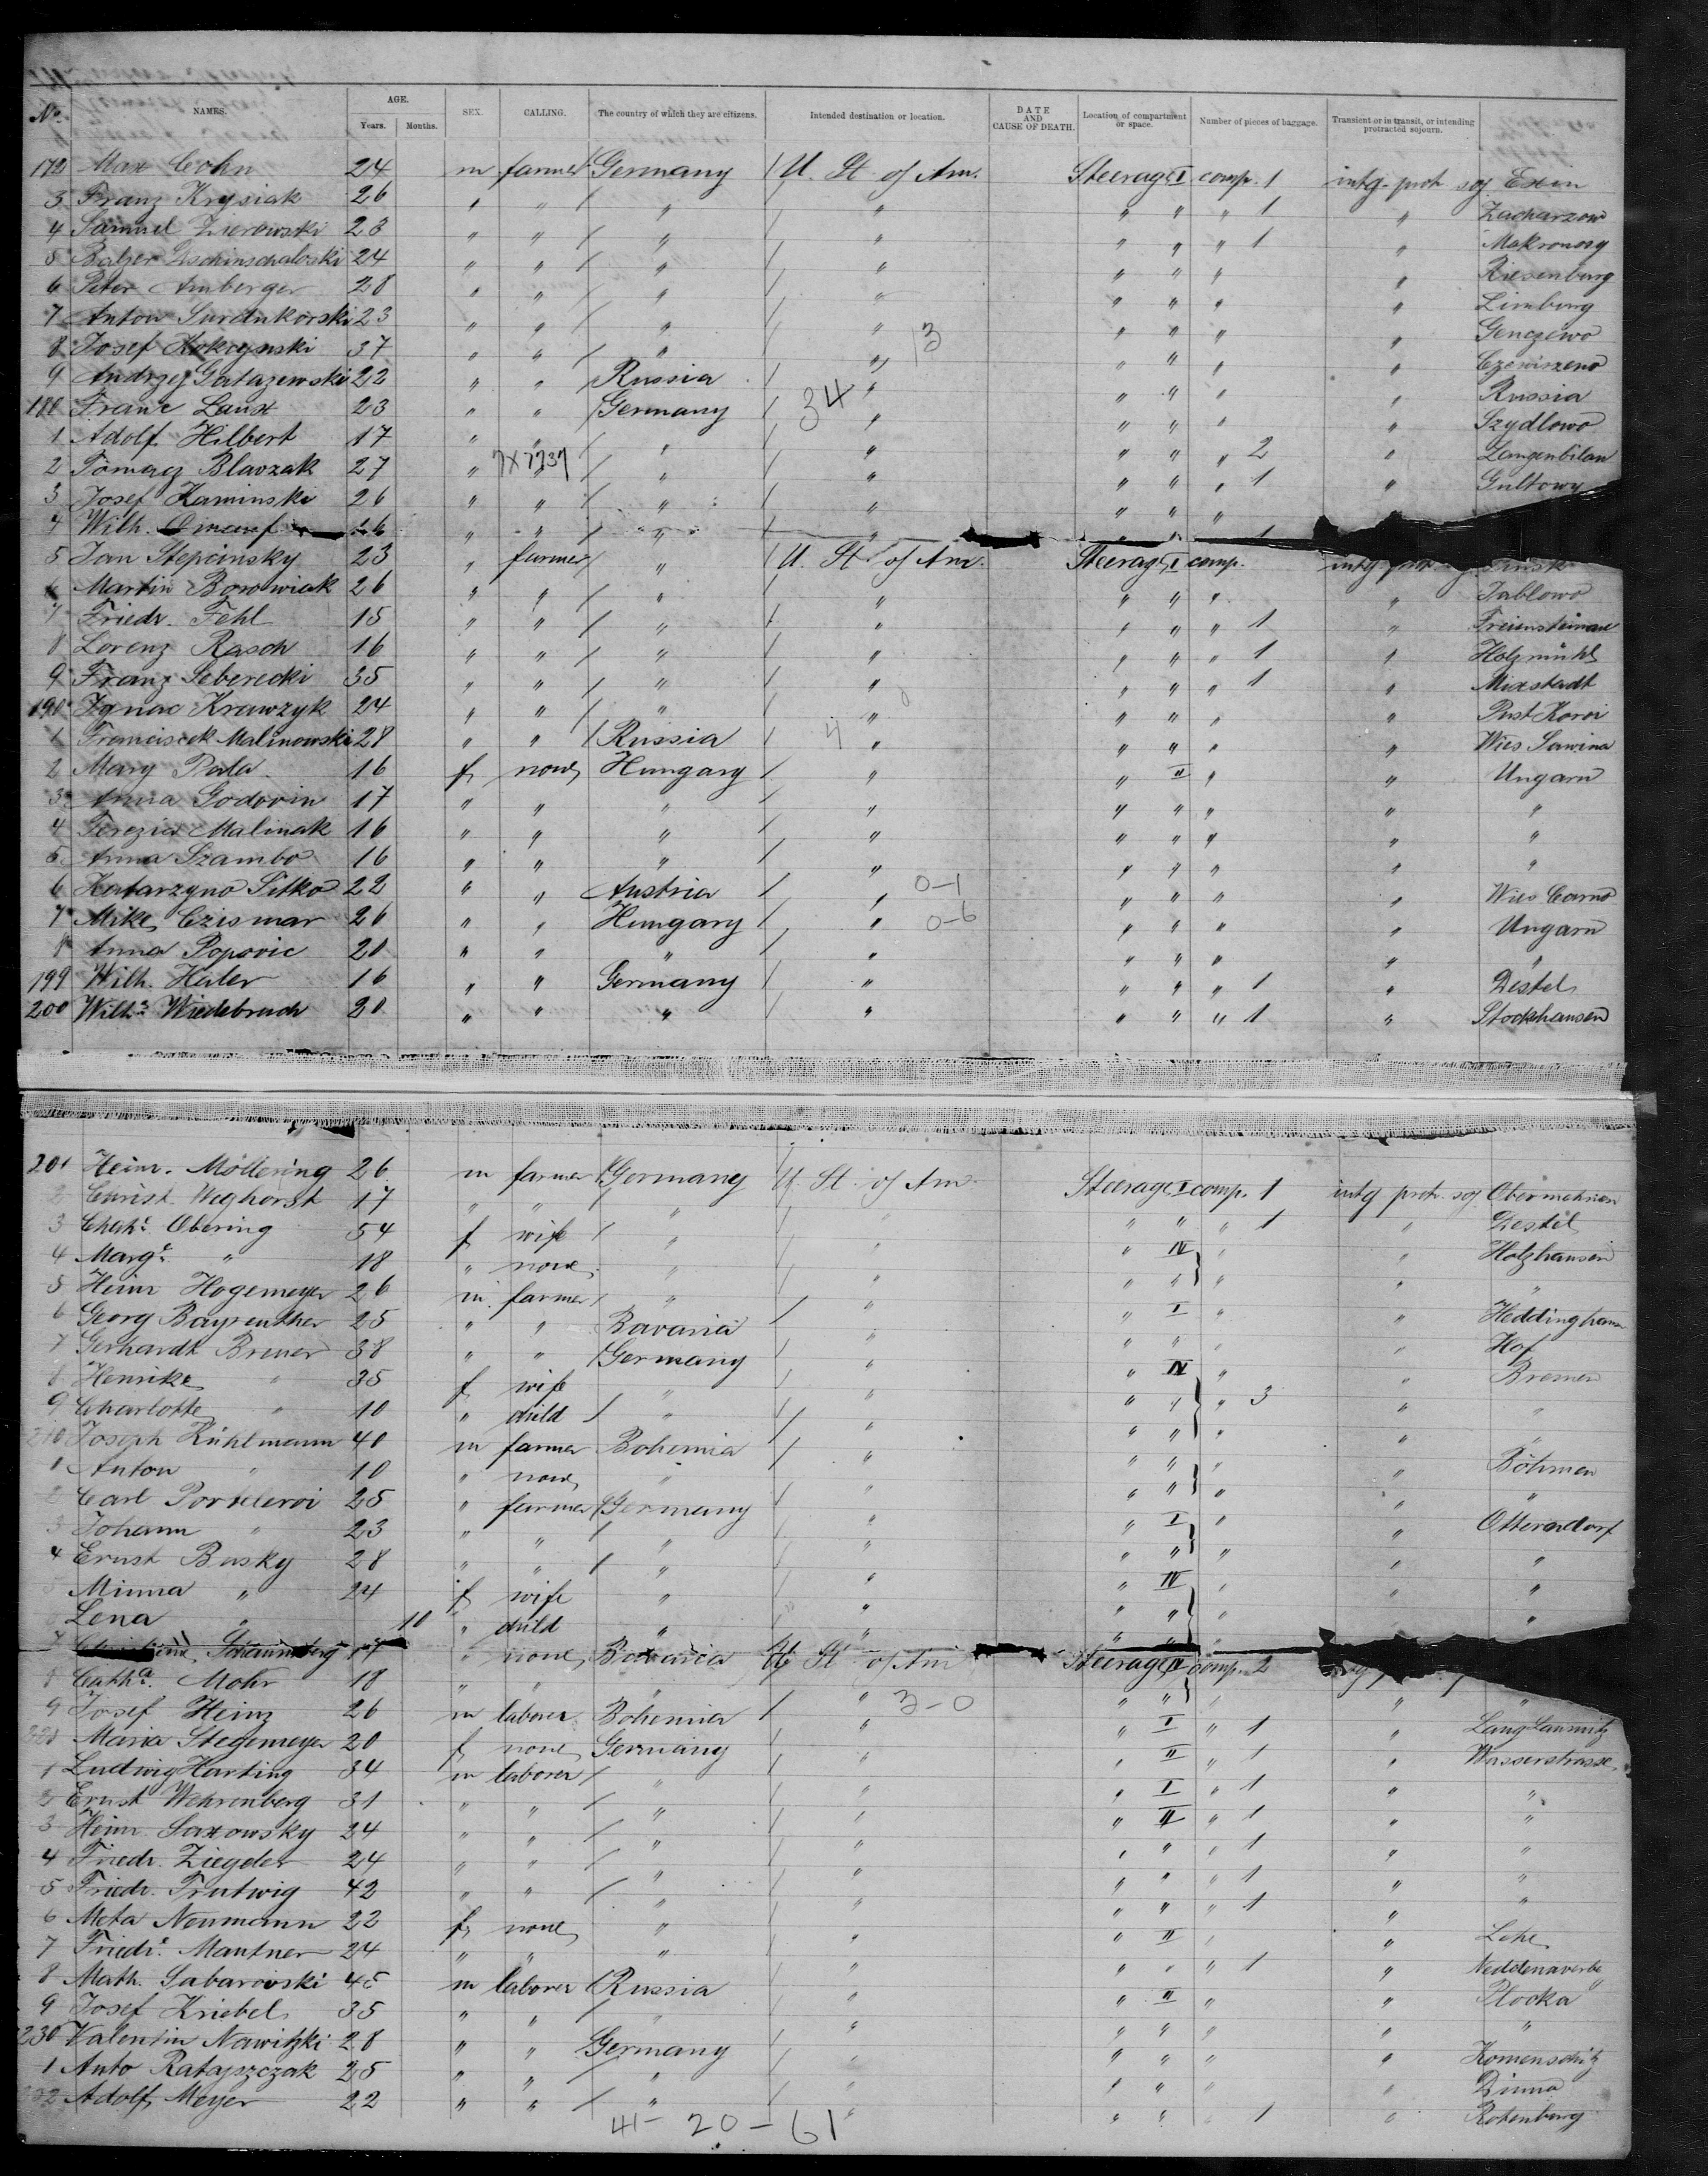 No. NAMES. AGE. Years. Months. SEX. CALLING. The country of which they are citizens. Intended destination or location. DATE AND CAUSE OF DEATH. Location of compartment or space. Number of pieces of baggage. Transient or in transit, or intending protracted sojourn.
172 Max Cohn 24 m farmer Germany U. St. of Am. Steerage I comp. 1 intg. prot. soj Exin
3 Franz Krysiak 26 " " " " " " " 1 " Zacharzow
4 Samuel Zierowski 23 " " " " " " " 1 "
5 Balzer 24 " " " " " " " " Riesenburg
6 Peter Amberger 28 " " " " " " " " Limburg
7 Anton 23 " " " " 3 " " " " Genczewo
8 Josef 37 " " " " " " " "
9 Andrzej Gatazewski 22 " " Russia " " " " " Russia
180 Franc Laux 23 " " Germany 34 " " " " " Szydlowo
1 Adolf Hilbert 17 " " " " " " " 2 " Langenbilau
2 Tomacz Blavzak 27 " 7X7737 " " " " " 1 " Gultowy
3 Josef Kaminski 26 " " " " " " "
4 Wilh. 26 " " " " " " 1
5 Jan Stepcinsky 23 " farmer " U. St. of Am. Steerage I comp. intg. prot.
6 Martin Borowiak 26 " " " " " " " " Jablowo
7 Friedr. Fehl 15 " " " " " " " 1 " Freiensteinau
8 Lorenz Rasch 16 " " " " " " " 1 " Holzmühl
9 Franz Seberecki 35 " " " " " " " 1 " Mixstadt
190 Ignac Krawzyk 24 " " " " " " " " Post Koroi
1 Franciscek Malinowski 28 " " Russia 4 " " " " " Wies Sawina
2 Mary Pala 16 f none Hungary " " II " " Ungarn
3 Anna Godovin 17 " " " " " " " " "
4 Terezia Malinak 16 " " " " " " " " "
5 Anna Szambo 16 " " " " " " " " "
6 Katarzyna Sitko 22 " " Austria " 0-1 " " " " Wies Carno
7 Mike Czismar 26 " " Hungary " 0-6 " " " " Ungarn
8 Anna Popovic 20 " " " " " " " " "
199 Wilh. Haler 16 " " Germany " " " " 1 " Destel
200 Wilh. Wiedebruch 20 " " " " " " " 1 " Stockhausen
201 Heinr. Möllering 26 m farmer Germany U. St. of Am. Steerage I comp. 1 intg prot. soj Obermehnen
2 Christ. Weghorst 17 " " " " " " " 1 " Destel
3 Chat. Obering 54 f wife " " " IV " " Holzhausen
4 Marg. " 18 " none " " " " " " "
5 Heinr Hogemeyer 26 m farmer " " " I " " Heddinghausen
6 Georg Bayreuther 25 " " Bavaria " " " " " Hof
7 Gerhardt Breuer 38 " " Germany " " IV " " Bremen
8 Henrike " 35 f wife " " " " " 3 " "
9 Charlotte " 10 " child " " " " " " "
210 Joseph Kühlmann 40 m farmer Bohemia " " " " " Böhmen
1 Anton " 10 " none " " " " " " "
2 Carl Porteleroi 25 " farmer Germany " " I " " Otterndorf
3 Johann " 23 " " " " " " " " "
4 Ernst Busky 28 " " " " " IV " " "
5 Minna " 24 f wife " " " " " " "
6 Lena " 10 " child " " " " "
7 17 " none Bavaria U St of Am Steerage II comp. 2
8 Cath. Mohr 18 " " " " " " " " "
9 Josef Heinz 26 m laborer Bohemia " 3-0 " I " 1 "
220 Maria Stegemeyer 20 f none Germany " " II " 1 " Wasserstrasse
1 Ludwig Harting 34 m laborer " " " I " 1 " "
2 Ernst Wehrenberg 31 " " " " " II " 1 " "
3 Heinr. Saxowsky 24 " " " " " " " 1 " "
4 Friedr. Ziegeler 24 " " " " " " " 1 " "
5 Friedr. Trutwig 42 " " " " " " " 1 " "
6 Meta Neumann 22 f none " " " II " " Lehe
7 Friedr. Mantner 24 " " " " " " " 1 " Neddenaverbg
8 Math. Sabarowski 45 m laborer Russia " " II " " Plocka
9 Josef Kriebel 35 " " " " " " " " "
230 Valentin Nawitzki 28 " " Germany " " " " " Komenschitz
1 Anto Ratajszczak 25 " " " " " " " " Dinna
232 Adolf Meyer 22 " " " " " " " 1 " Rotenburg
41- 20 - 61